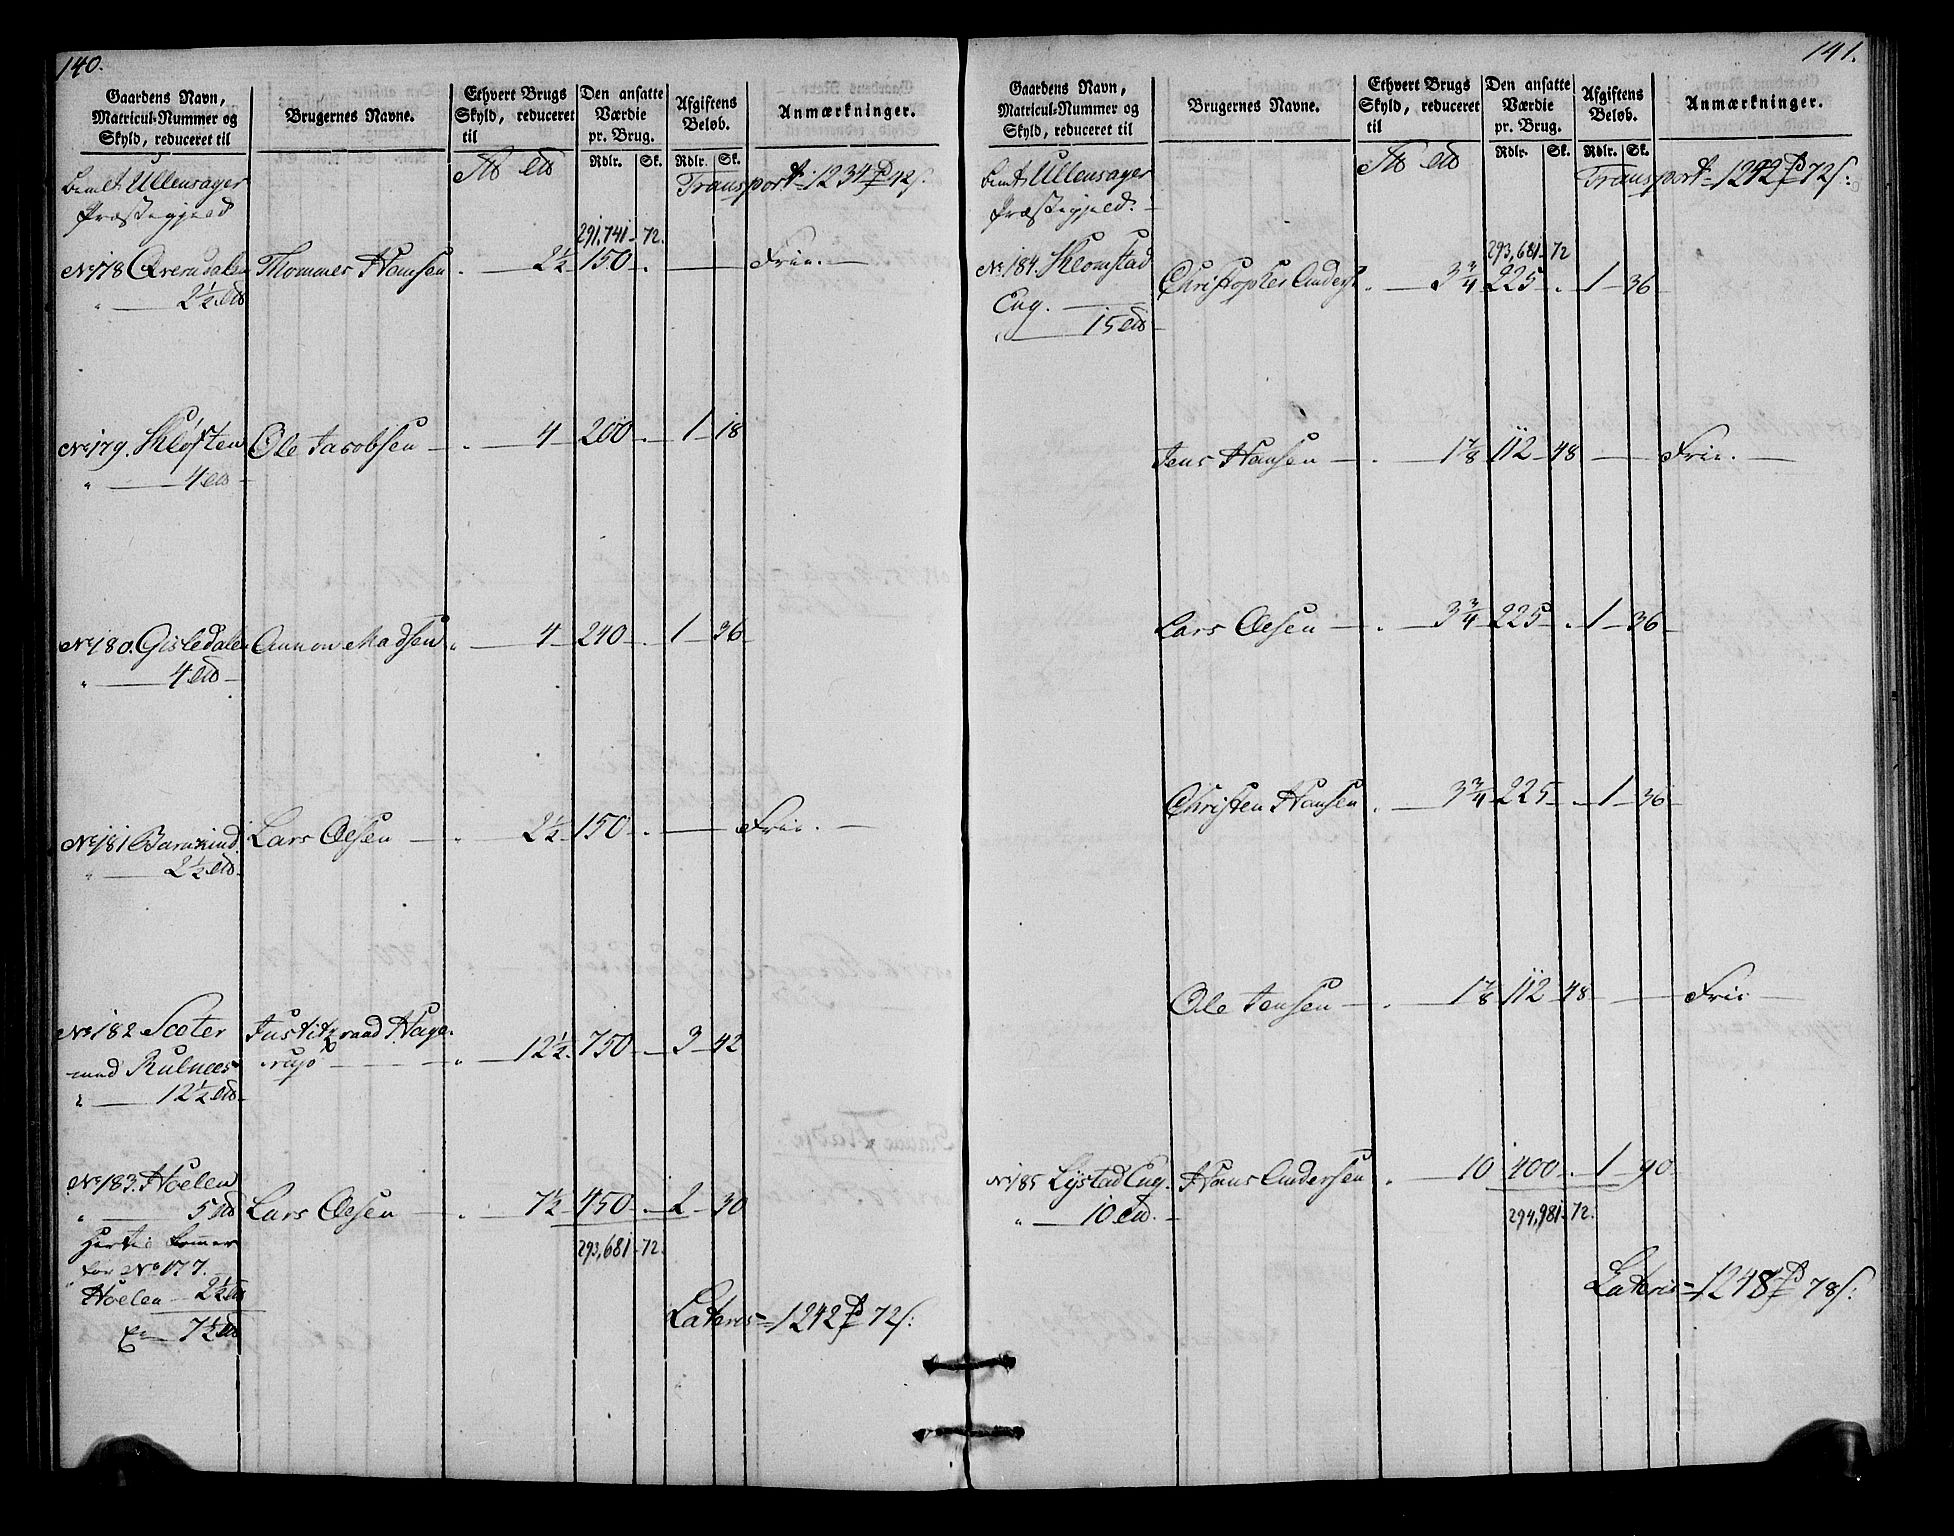 140.
Gaardens Navn,
Matricul-Nummer og
Skyld, reduceret til
Brugernes Navne.
Ethvert Brugs
Skyld, reduceret
til
Den ansatte
Værdie
pr. Brug.
Rdlr. Sk.
Afgiftens
Beløb.
Rdlr. Sk.
Anmærkninger.
Ullensager
Præstegjeld
Transport 1234 42
291,741 - 72.
No 178 Thommes Hansen 2½ 150 Frie.
2½
No 179. Kløften Ole Jacobsen 4 200 1 18
4
No 180. Gisledalen Amon Madsen 4 240 1 36
4
No 181 Lars Olsen 2½ 150 Frie.
2½
No 182 Scoter Justitzraad Hage-
med Rulnees rup 12½ 750 3 42
12½
No 183. Hoelen
5 Lars Olsen 7½ 450 2 30
Hertil kommer
for No 177. 293,681 - 72.
Hoelen 2½
Er 7½
Lateris = 1242 72
141.
Gaardens Navn,
Matricul-Nummer og
Skyld, reduceret til
Brugernes Navne.
Ethvert Brugs
Skyld, reduceret
til
Den ansatte
Værdie
pr. Brug.
Rdlr. Sk.
Afgiftens
Beløb.
Rdlr. Sk.
Anmærkninger.
Ullensager
Præstegjeld
Transport 1242 72
293,681 - 72
No 184. Klomstad Christopher Anders. 3¾ 225 1 36
Eng.
15
Jens Hansen 1⅞ 112 48 Frie.
Lars Olsen 3¾ 225 1 36
Christen Hansen 3¾ 225 1 36
Ole Jensen 1⅞ 112 48 Frie
No 185 Lystad Eng. Hans Andersen 10 400 1 90
10
294,981 - 72.
Lateris = 1248 78